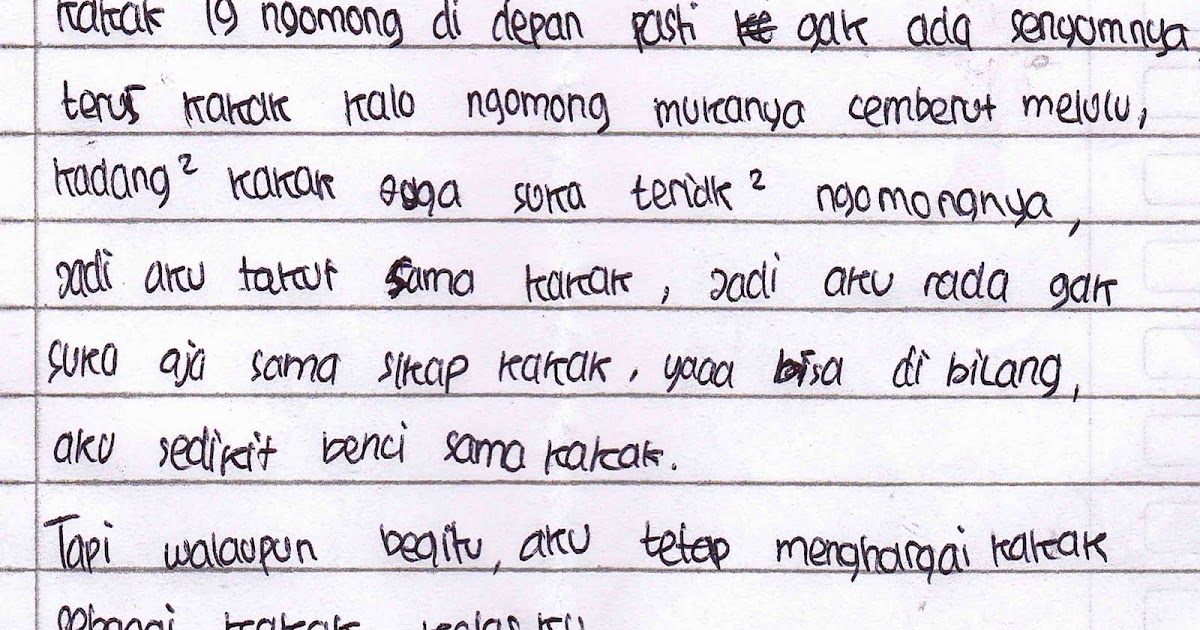 kakak lg ngomong di depan pasti gak ada senyomnya,
terus kakak kalo ngomong mukanya cemberut melulu,
kadang² kakak suka teriak² ngomongnya,
jadi aku takut sama kakak, jadi aku rada gak
suka aja sama sikap kakak, yaaa bisa di bilang,
aku sedikit benci sama kakak.
Tapi walaupun begitu, aku tetap menghargai kakak
sebagai kakak kelas ku